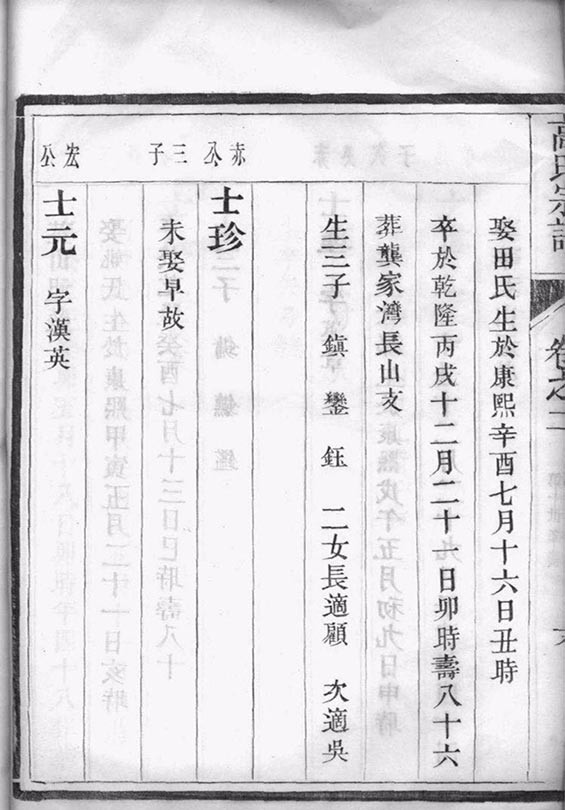 高氏宗譜
卷之二
娶田氏生於康熙辛酉七月十六日丑時
卒於乾隆丙戌十二月二十一日卯時壽八十六
葬龔家灣長山支
生三子 鎮 鑾 鈺 二女長適顧 次適吳
赤公
士珍
三子
未娶早故
宏公
士元 字漢英